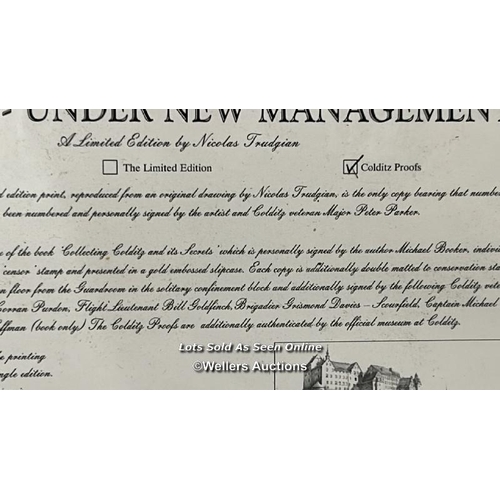 - UNDER NEW MANAGEMENT
A Limited Edition by Nicolas Trudgian
The Limited Edition
Colditz Proofs
d edition print, reproduced from an original drawing by Nicolas Trudgian, is the only copy bearing that number
been numbered and personally signed by the artist and Colditz veteran Major Peter Parker.
e of the book 'Collecting Colditz and its Secrets' which is personally signed by the author Michael Booker, indivi
'censor' stamp and presented in a gold embossed slipcase. Each copy is additionally double matted to conservation sta
n floor from the Guardroom in the solitary confinement block and additionally signed by the following Colditz vete
Corran Purdon, Flight Lieutenant Bill Goldfinch, Brigadier Grismond Davies - Scourfield, Captain Michael
ffman (book only) The Colditz Proofs are additionally authenticated by the official museum at Colditz.
e printing
ngle edition.
Lots Sold As Seen Online
©Wellers Auctions